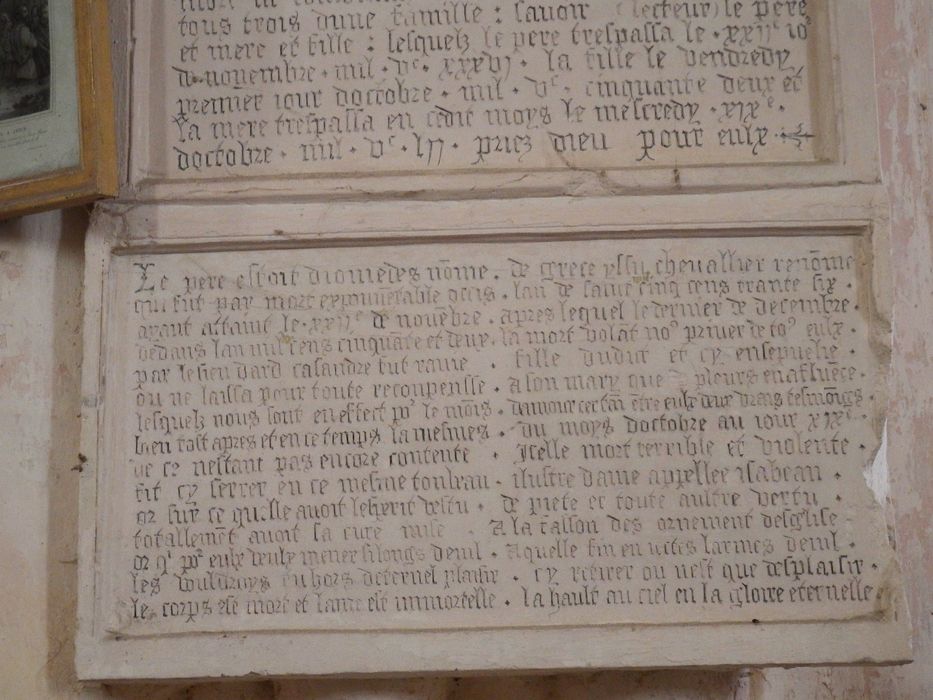 tous trois dune famille : savoir (lecteur) le pere
et mere et fille : lesquelz le pere trespassa le · xxiiᵉ io
de novembre · mil · vᶜ · xxxvi · la fille le vendredy
premier iour doctobre · mil · vᶜ · cinquante deux et
la mere trespassa en cedit moys le mescredy · xixᵉ ·
doctobre · mil · vᶜ · lii · priez dieu pour eulx ·
Le pere estoit diomedes nōme · de grece yssu chevallier renōme
qui fut par mort exinnūerable occis · lan de salut cinq cens trante six ·
ayant attaint le · xxiiᵉ de novēbre · apres lequel le dernier de decembre ·
dedans lan mil vcens cinquāte et deux · la mort volāt noˀ priver de toˀ eulx ·
par le sien dard casandre fut ravie · fille dudict et cy ensepvelie ·
ou ne laissa pour toute recompense · A son mary que pleurs en afluēce ·
lesquelz nous sont en effect pʳ le mōns · damour certāi ētre eulx deux vrays tesmoings ·
bien tost apres et en ce temps la mesmes · du moys doctobre au iour xixᵉ ·
de ce nestant pas encore contente · Icelle mort terrible et violente ·
fit cy serrer en ce mesme tonbeau · ilustre dame appellee Isabeau ·
or sur ce quelle avoit lesperit vestu · de piete et toute aultre vertu ·
totallemēt avoit sa cure mise · A la fasson des ornement desglise
or qˢ pʳ eulx deulx mener si longs deuil · Aquelle fin en iectes larmes deuil ·
les vouldroys en hors deternel plaisir · cy retirer ou nest que desplaisir ·
le corps est mort et lame est immortelle · la hault au ciel en la gloire eternelle